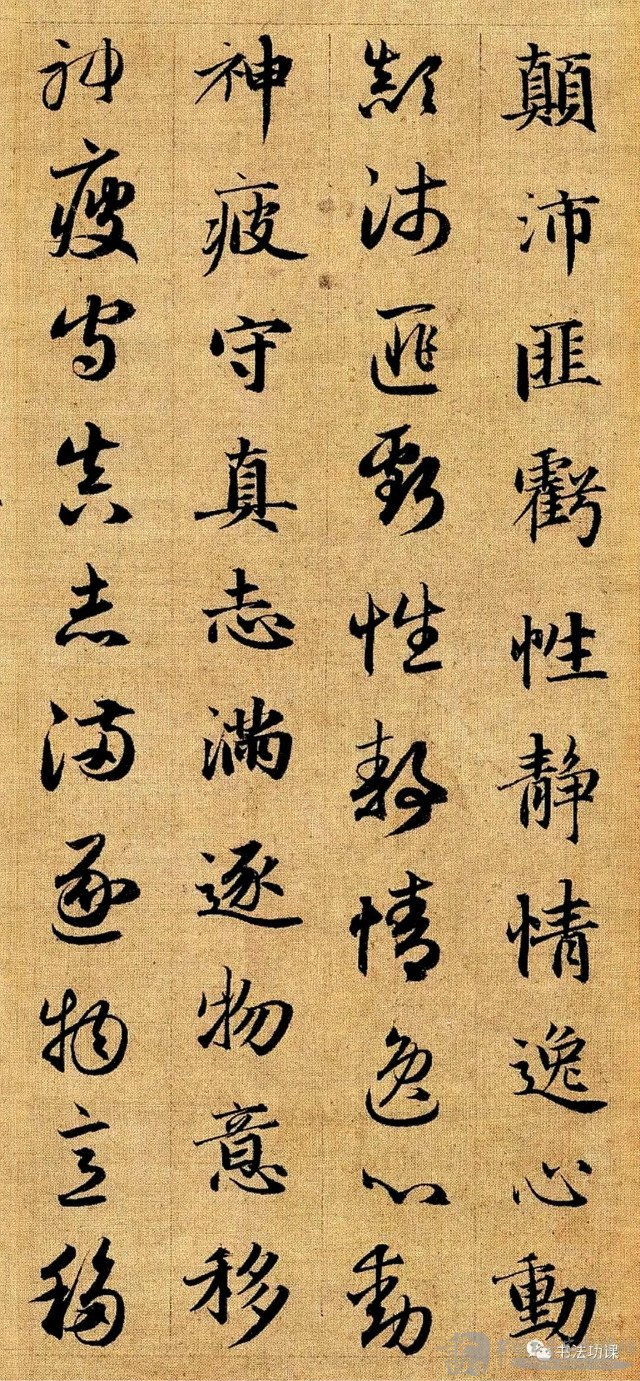 顛沛匪虧性靜情逸心動
顛沛匪虧性靜情逸心動
神疲守真志滿逐物意移
神疲守真志滿逐物意移
书法功课